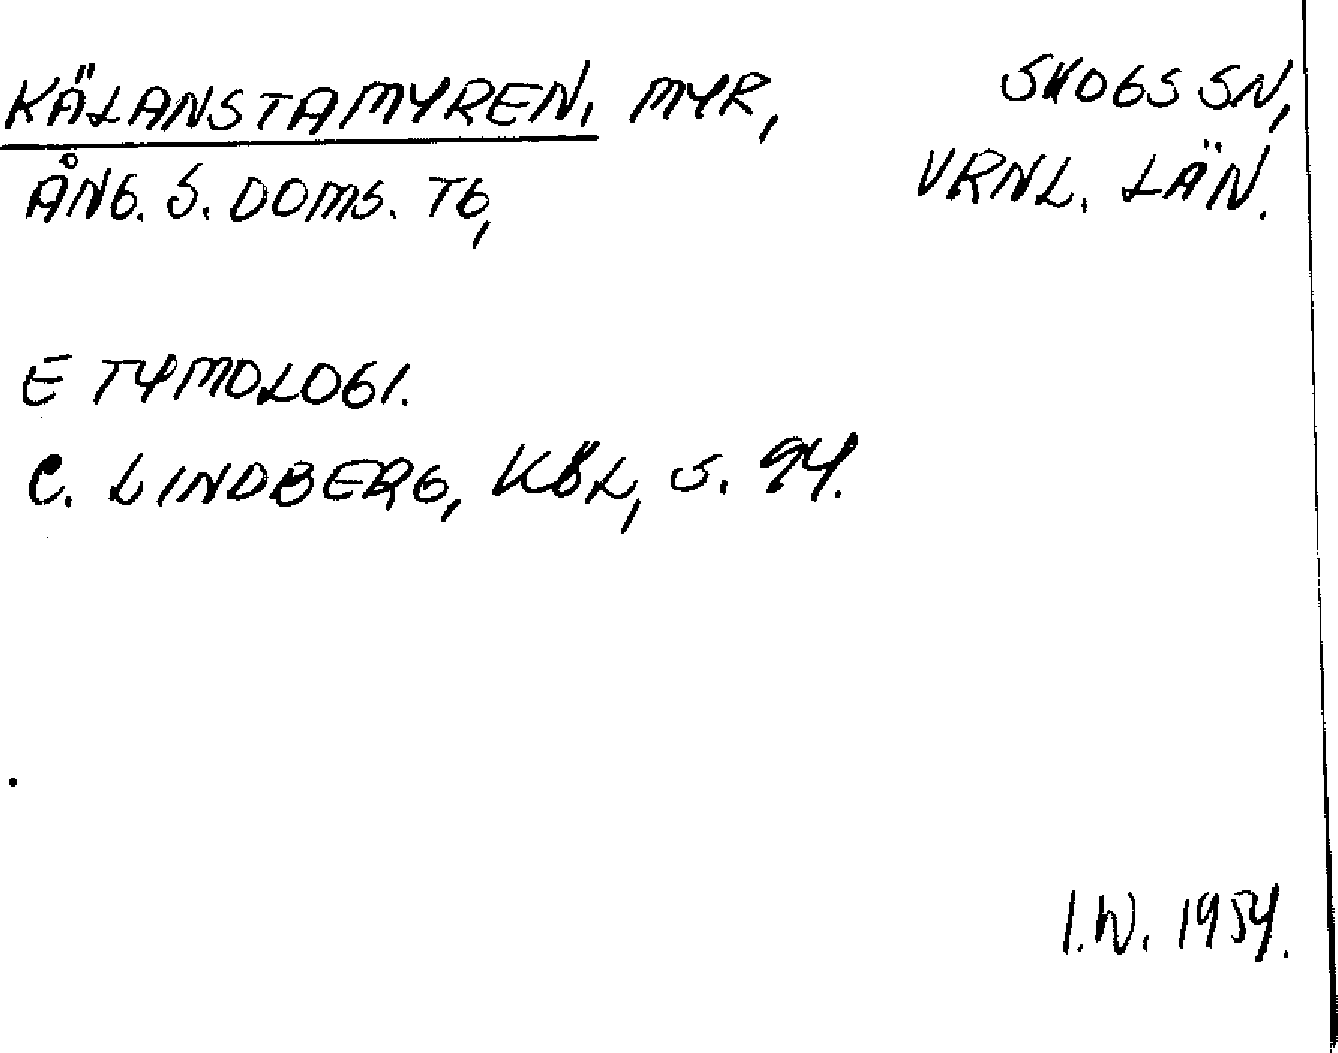 KÄLANSTAMYREN, MYR, SKOGS SN,
ÅNG. S. DOMS. TG, VRNL. LÄN.
ETYMOLOGI.
C. LINDBERG, KÖL, S. 94.
I.W. 1954.